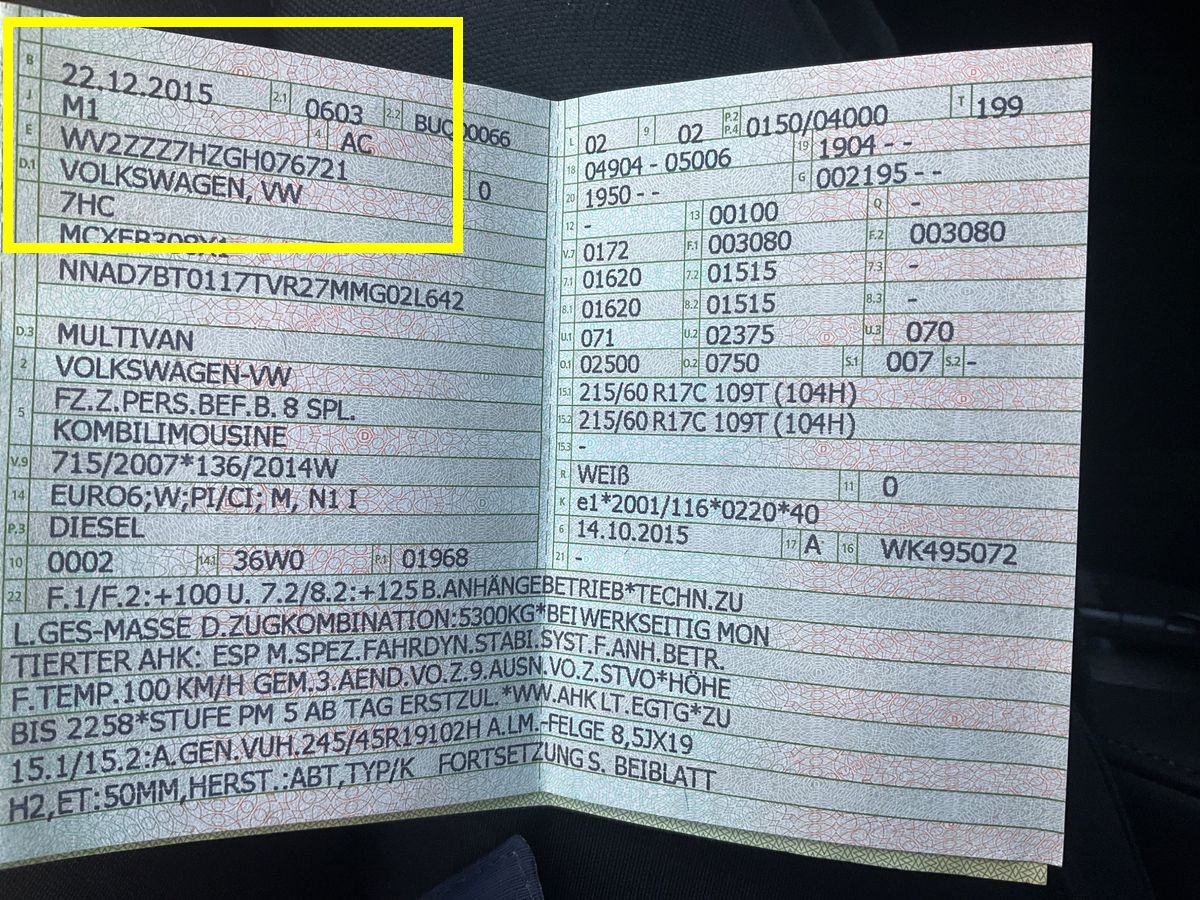 B 22.12.2015 2.1 0603 2.2 BUQ00066
J M1 4 AC
E WV2ZZZ7HZGH076721 0
D.1 VOLKSWAGEN, VW
7HC
NNAD7BT0117TVR27MMG02L642
D.3 MULTIVAN
2 VOLKSWAGEN-VW
5 FZ.Z.PERS.BEF.B. 8 SPL.
KOMBILIMOUSINE
V.9 715/2007*136/2014W
14 EURO6;W;PI/CI; M, N1 I
P.3 DIESEL
10 0002 14.1 36W0 P.1 01968
L 02 9 02 P.2 P.4 0150/04000 T 199
18 04904 - 05006 19 1904 - -
20 1950 - - G 002195 - -
12 - 13 00100 Q -
V.7 0172 F.1 003080 F.2 003080
7.1 01620 7.2 01515 7.3 -
8.1 01620 8.2 01515 8.3 -
U.1 071 U.2 02375 U.3 070
O.1 02500 O.2 0750 S.1 007 S.2 -
15.1 215/60 R17C 109T (104H)
15.2 215/60 R17C 109T (104H)
15.3 -
R WEIß 11 0
K e1*2001/116*0220*40
6 14.10.2015 17 A 16 WK495072
21 -
22 F.1/F.2:+100 U. 7.2/8.2:+125 B.ANHÄNGEBETRIEB*TECHN.ZU
L.GES-MASSE D.ZUGKOMBINATION:5300KG*BEI WERKSEITIG MON
TIERTER AHK: ESP M.SPEZ.FAHRDYN.STABI.SYST.F.ANH.BETR.
F.TEMP.100 KM/H GEM.3.AEND.VO.Z.9.AUSN.VO.Z.STVO*HÖHE
BIS 2258*STUFE PM 5 AB TAG ERSTZUL.*WW.AHK LT.EGTG*ZU
15.1/15.2:A.GEN.VUH.245/45R19102H A.LM.-FELGE 8,5JX19
H2,ET:50MM,HERST.:ABT,TYP/K FORTSETZUNG S. BEIBLATT